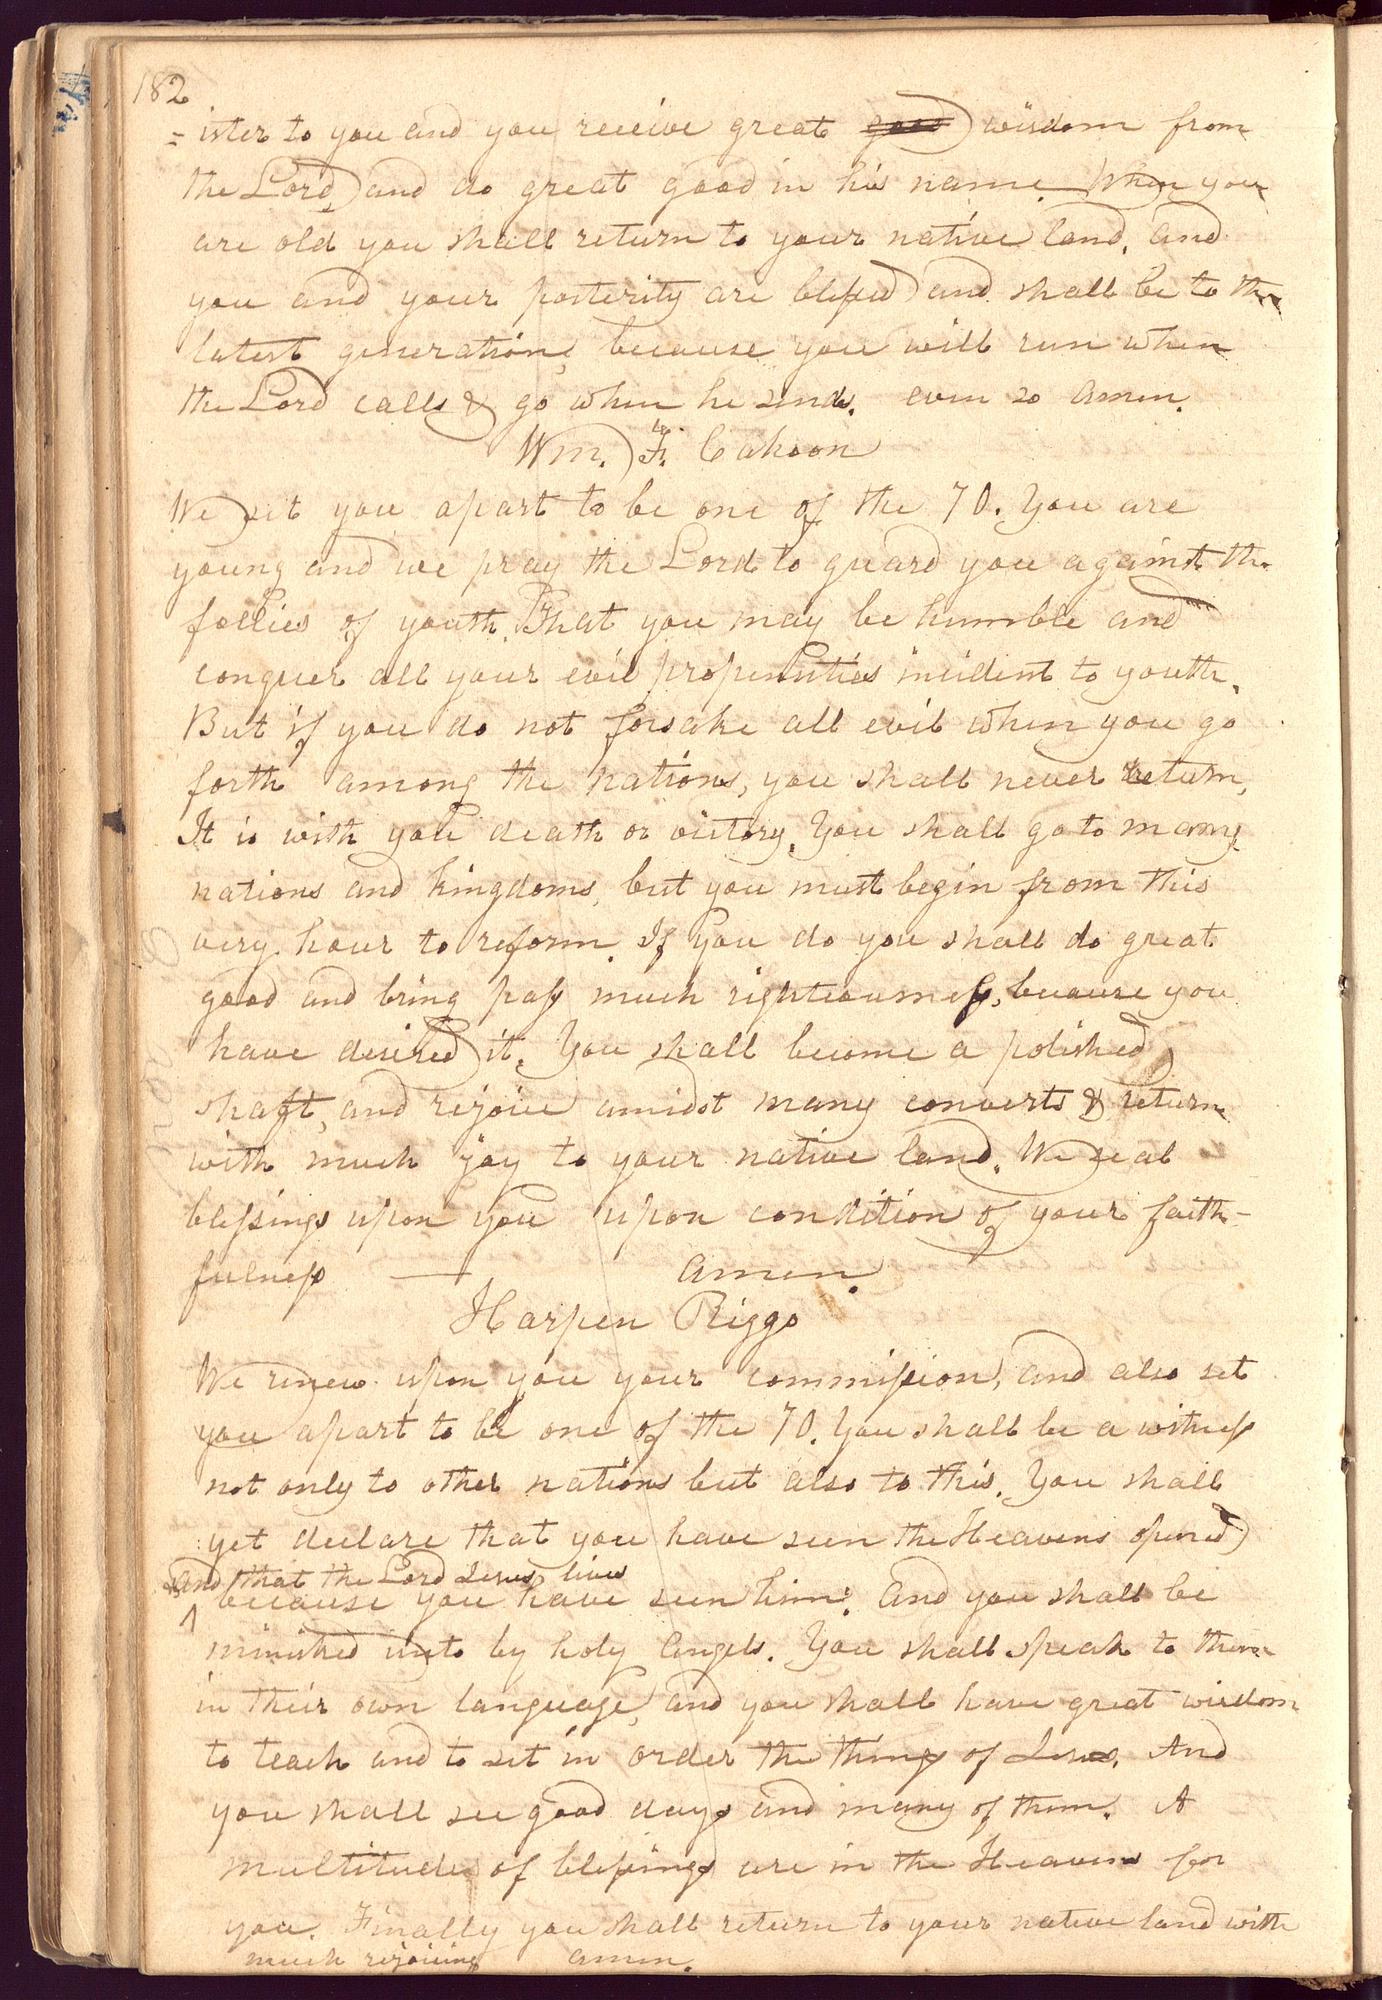 182
=ister to you and you receive great good wisdom from
the Lord, and do great good in his name. When you
are old you shall return to your native land, and
you and your posterity are blessed and shall be to the
latest generation, because you will run when
the Lord calls & go when he sends. even so Amen.
Wm. F. Cahoon
We set you apart to be one of the 70. You are
young and we pray the Lord to guard you against the
follies of youth, That you may be humble and
conquer all your evil propensities incident to youth.
But if you do not forsake all evil when you go
forth among the nations, you shall never return,
It is with you death or victory. You shall go to many
nations and kingdoms, but you must begin from this
very hour to reform. If you do you shall do great
good and bring pass much righteousness, because you
have desired it. You shall become a polished
shaft, and rejoice amidst many converts & return
with much joy to your native land. We seal
blessings upon you upon condition of your faith-
fulness — Amen.
Harpen Riggs
We renew upon you your commission, and also set
you apart to be one of the 70. You shall be a witness
not only to other nations but also to this. You shall
yet declare that you have seen the Heavens opened
and that the Lord Jesus lives
because you have seen him. And you shall be
ministed unto by holy Angels. You shall speak to them
in their own language, and you shall have great wisdom
to teach and to set in order the things of Jesus. And
you shall see good days and many of them. A
multitude of blessings are in the Heavens for
you. Finally you shall return to your native land with
much rejoicing Amen.